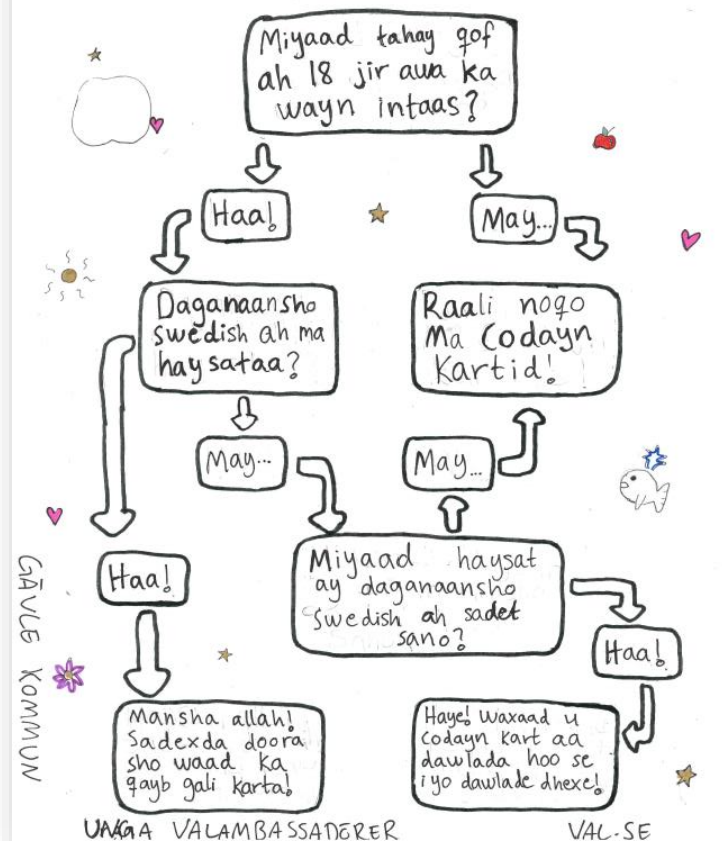 Miyaad tahay qof
ah 18 jir awa ka
wayn intaas?
Haa!
May...
Daganaansho
swedish ah ma
haysataa?
Raali noqo
Ma Codayn
Kartid!
May...
May...
Haa!
Miyaad haysat
ay daganaansho
Swedish ah sadet
sano?
Haa!
Mansha allah!
Sadexda doora
sho waad ka
qayb gali karta!
Haye! waxaad u
codayn kart aa
dawlada hoo se
iyo dawlade dhexe!
GÄVLE KOMMUN
UNGA VALAMBASSADERER
VAL.SE